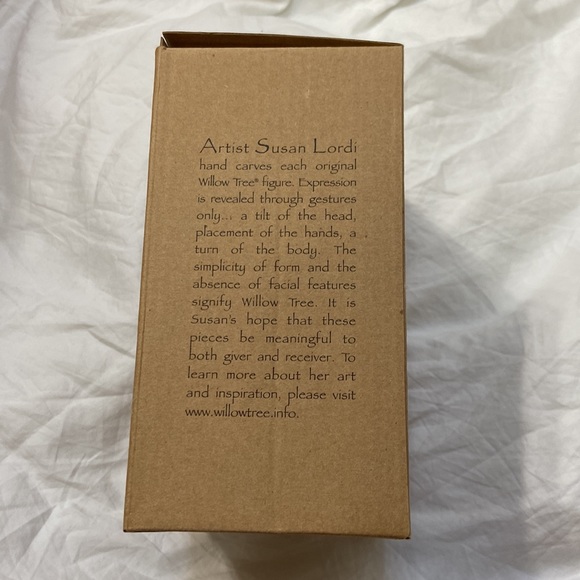 Artist Susan Lordi
hand carves each original
Willow Tree® figure. Expression
is revealed through gestures
only... a tilt of the head,
placement of the hands, a
turn of the body. The
simplicity of form and the
absence of facial features
signify Willow Tree. It is
Susan's hope that these
pieces be meaningful to
both giver and receiver. To
learn more about her art
and inspiration, please visit
www.willowtree.info.